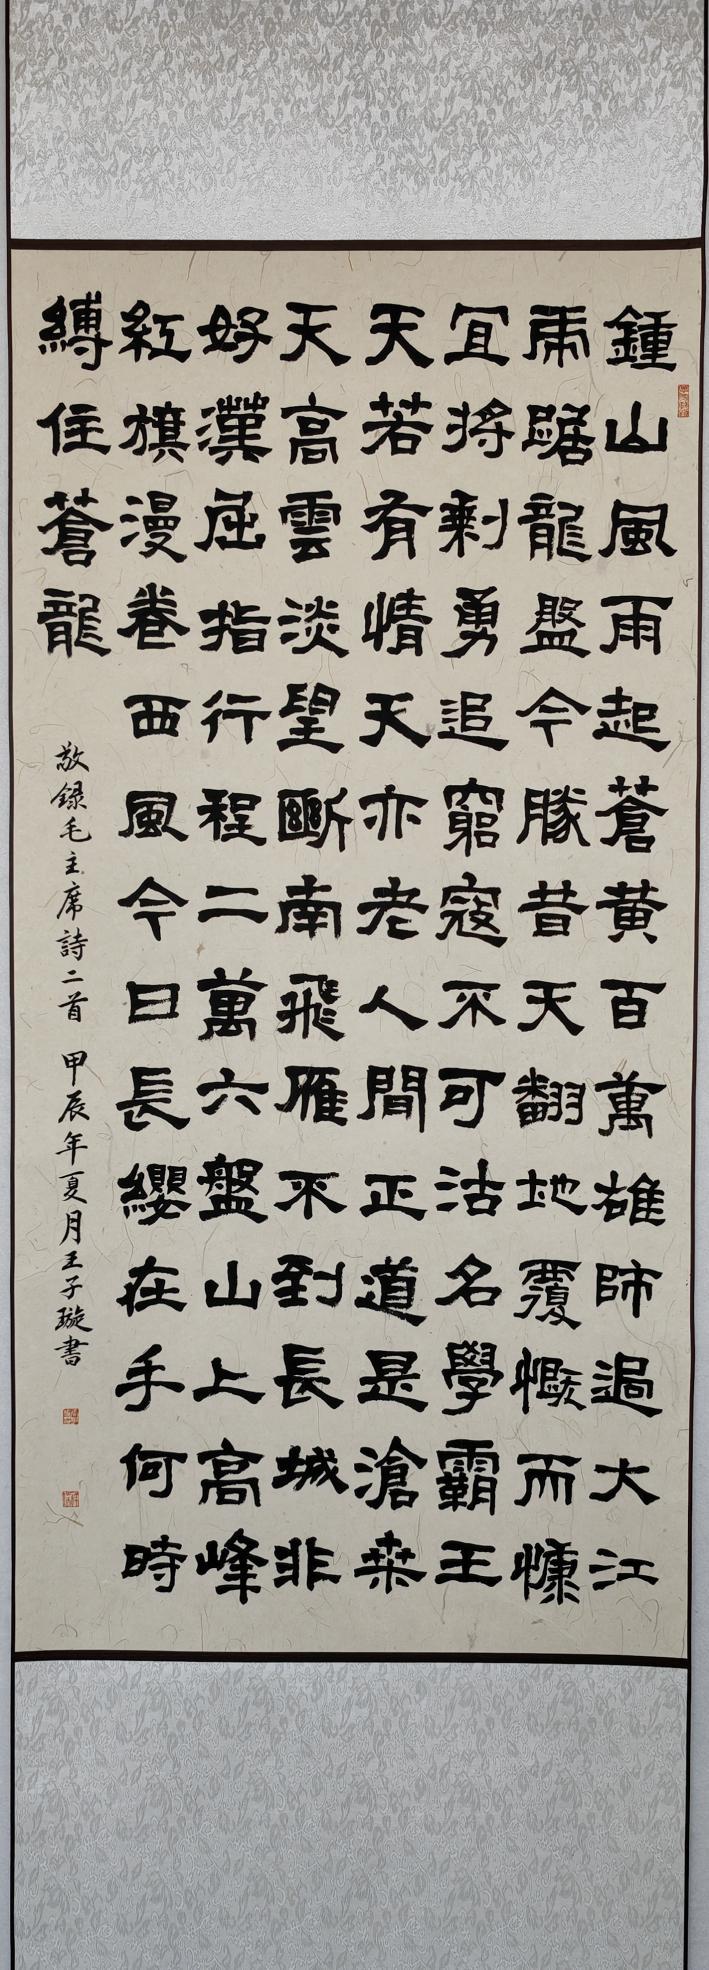 鍾山風雨起蒼黃百萬雄師過大江
虎踞龍盤今勝昔天翻地覆慨而慷
宜將剩勇追窮寇不可沽名學霸王
天若有情天亦老人間正道是滄桑
天高雲淡望斷南飛雁不到長城非
好漢屈指行程二萬六盤山上高峰
紅旗漫卷西風今日長纓在手何時
縛住蒼龍
敬録毛主席詩二首 甲辰年夏月王子璇書